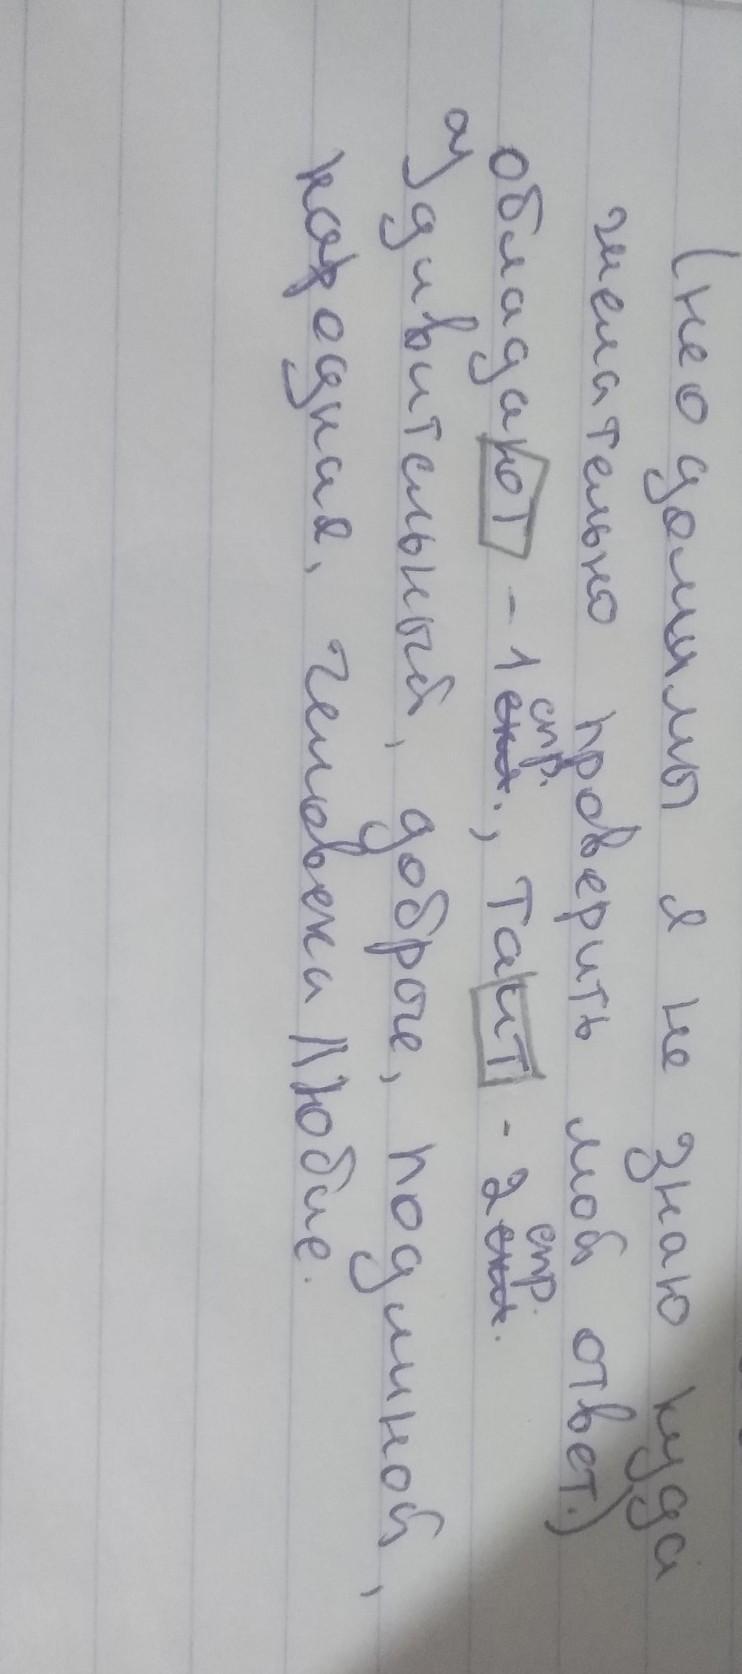 (неодолимы я не знаю куда
желательно проверить мой ответ.)
обладают - 1 спр., таит - 2 спр.
а) удивительный, доброе, подлиной,
народная, человеколюбие.